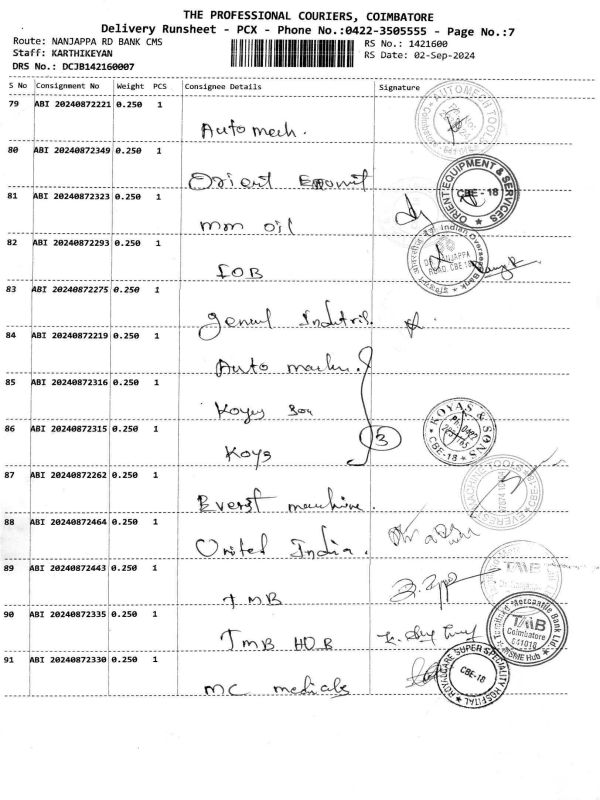 THE PROFESSIONAL COURIERS, COIMBATORE
Delivery Runsheet - PCX - Phone No.:0422-3505555 - Page No.:7
Route: NANJAPPA RD BANK CMS
RS No.: 1421600
Staff: KARTHIKEYAN
RS Date: 02-Sep-2024
DRS No.: DCJB142160007
S No Consignment No Weight PCS Consignee Details Signature
79 ABI 20240872221 0.250 1
Auto mech.
AUTOMECH TOOLS
80 ABI 20240872349 0.250 1
Orient
ORIENT EQUIPMENT & SERVICES
CBE - 18
81 ABI 20240872323 0.250 1
mm oil
82 ABI 20240872293 0.250 1
IOB
Indian Overseas Bank
DR. NANJAPPA
ROAD, CBE 18
83 ABI 20240872275 0.250 1
84 ABI 20240872219 0.250 1
Auto
85 ABI 20240872316 0.250 1
Koyas Son
86 ABI 20240872315 0.250 1
Koys
3
KOYAS & SONS
CBE-18
87 ABI 20240872262 0.250 1
Everest machine
88 ABI 20240872464 0.250 1
United India.
89 ABI 20240872443 0.250 1
TMB
TMB
90 ABI 20240872335 0.250 1
TMB HUB
Tamilnad Mercantile Bank Ltd
TMB
Coimbatore
641018
MSME Hub
91 ABI 20240872330 0.250 1
MC medicals
ROYALCARE SUPER SPECIALITY HOSPITAL
CBE-18